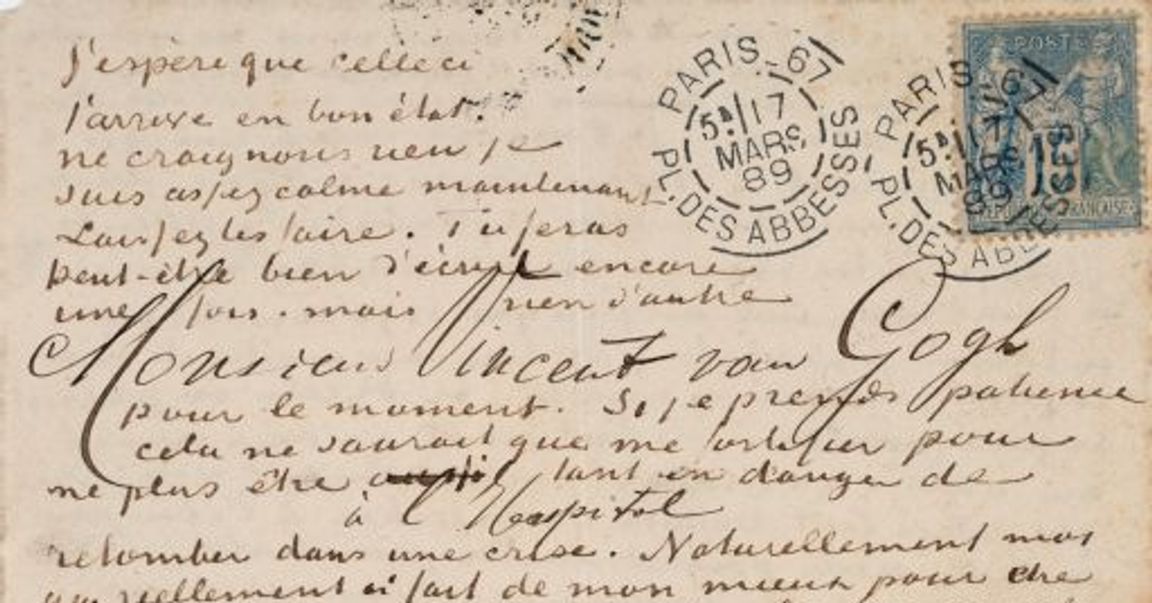 J'espère que celle ci
PARIS - 67
5E 17
MARS
89
PL. DES ABBESSES
PARIS - 67
5E 17
MARS
89
PL. DES ABBESSES
POSTE
15
t'arrive en bon état.
ne craignons rien je
suis assez calme maintenant
Laissez les faire. Tu feras
peut-être bien d'écrire encore
une fois. mais rien d'autre
Monsieur Vincent van Gogh
pour le moment. Si je prends patience
cela ne saurait que me fortifier pour
ne plus être tant en danger de
à l'Hospital
retomber dans une crise. Naturellement moi
qui réellement ai fait de mon mieux pour être